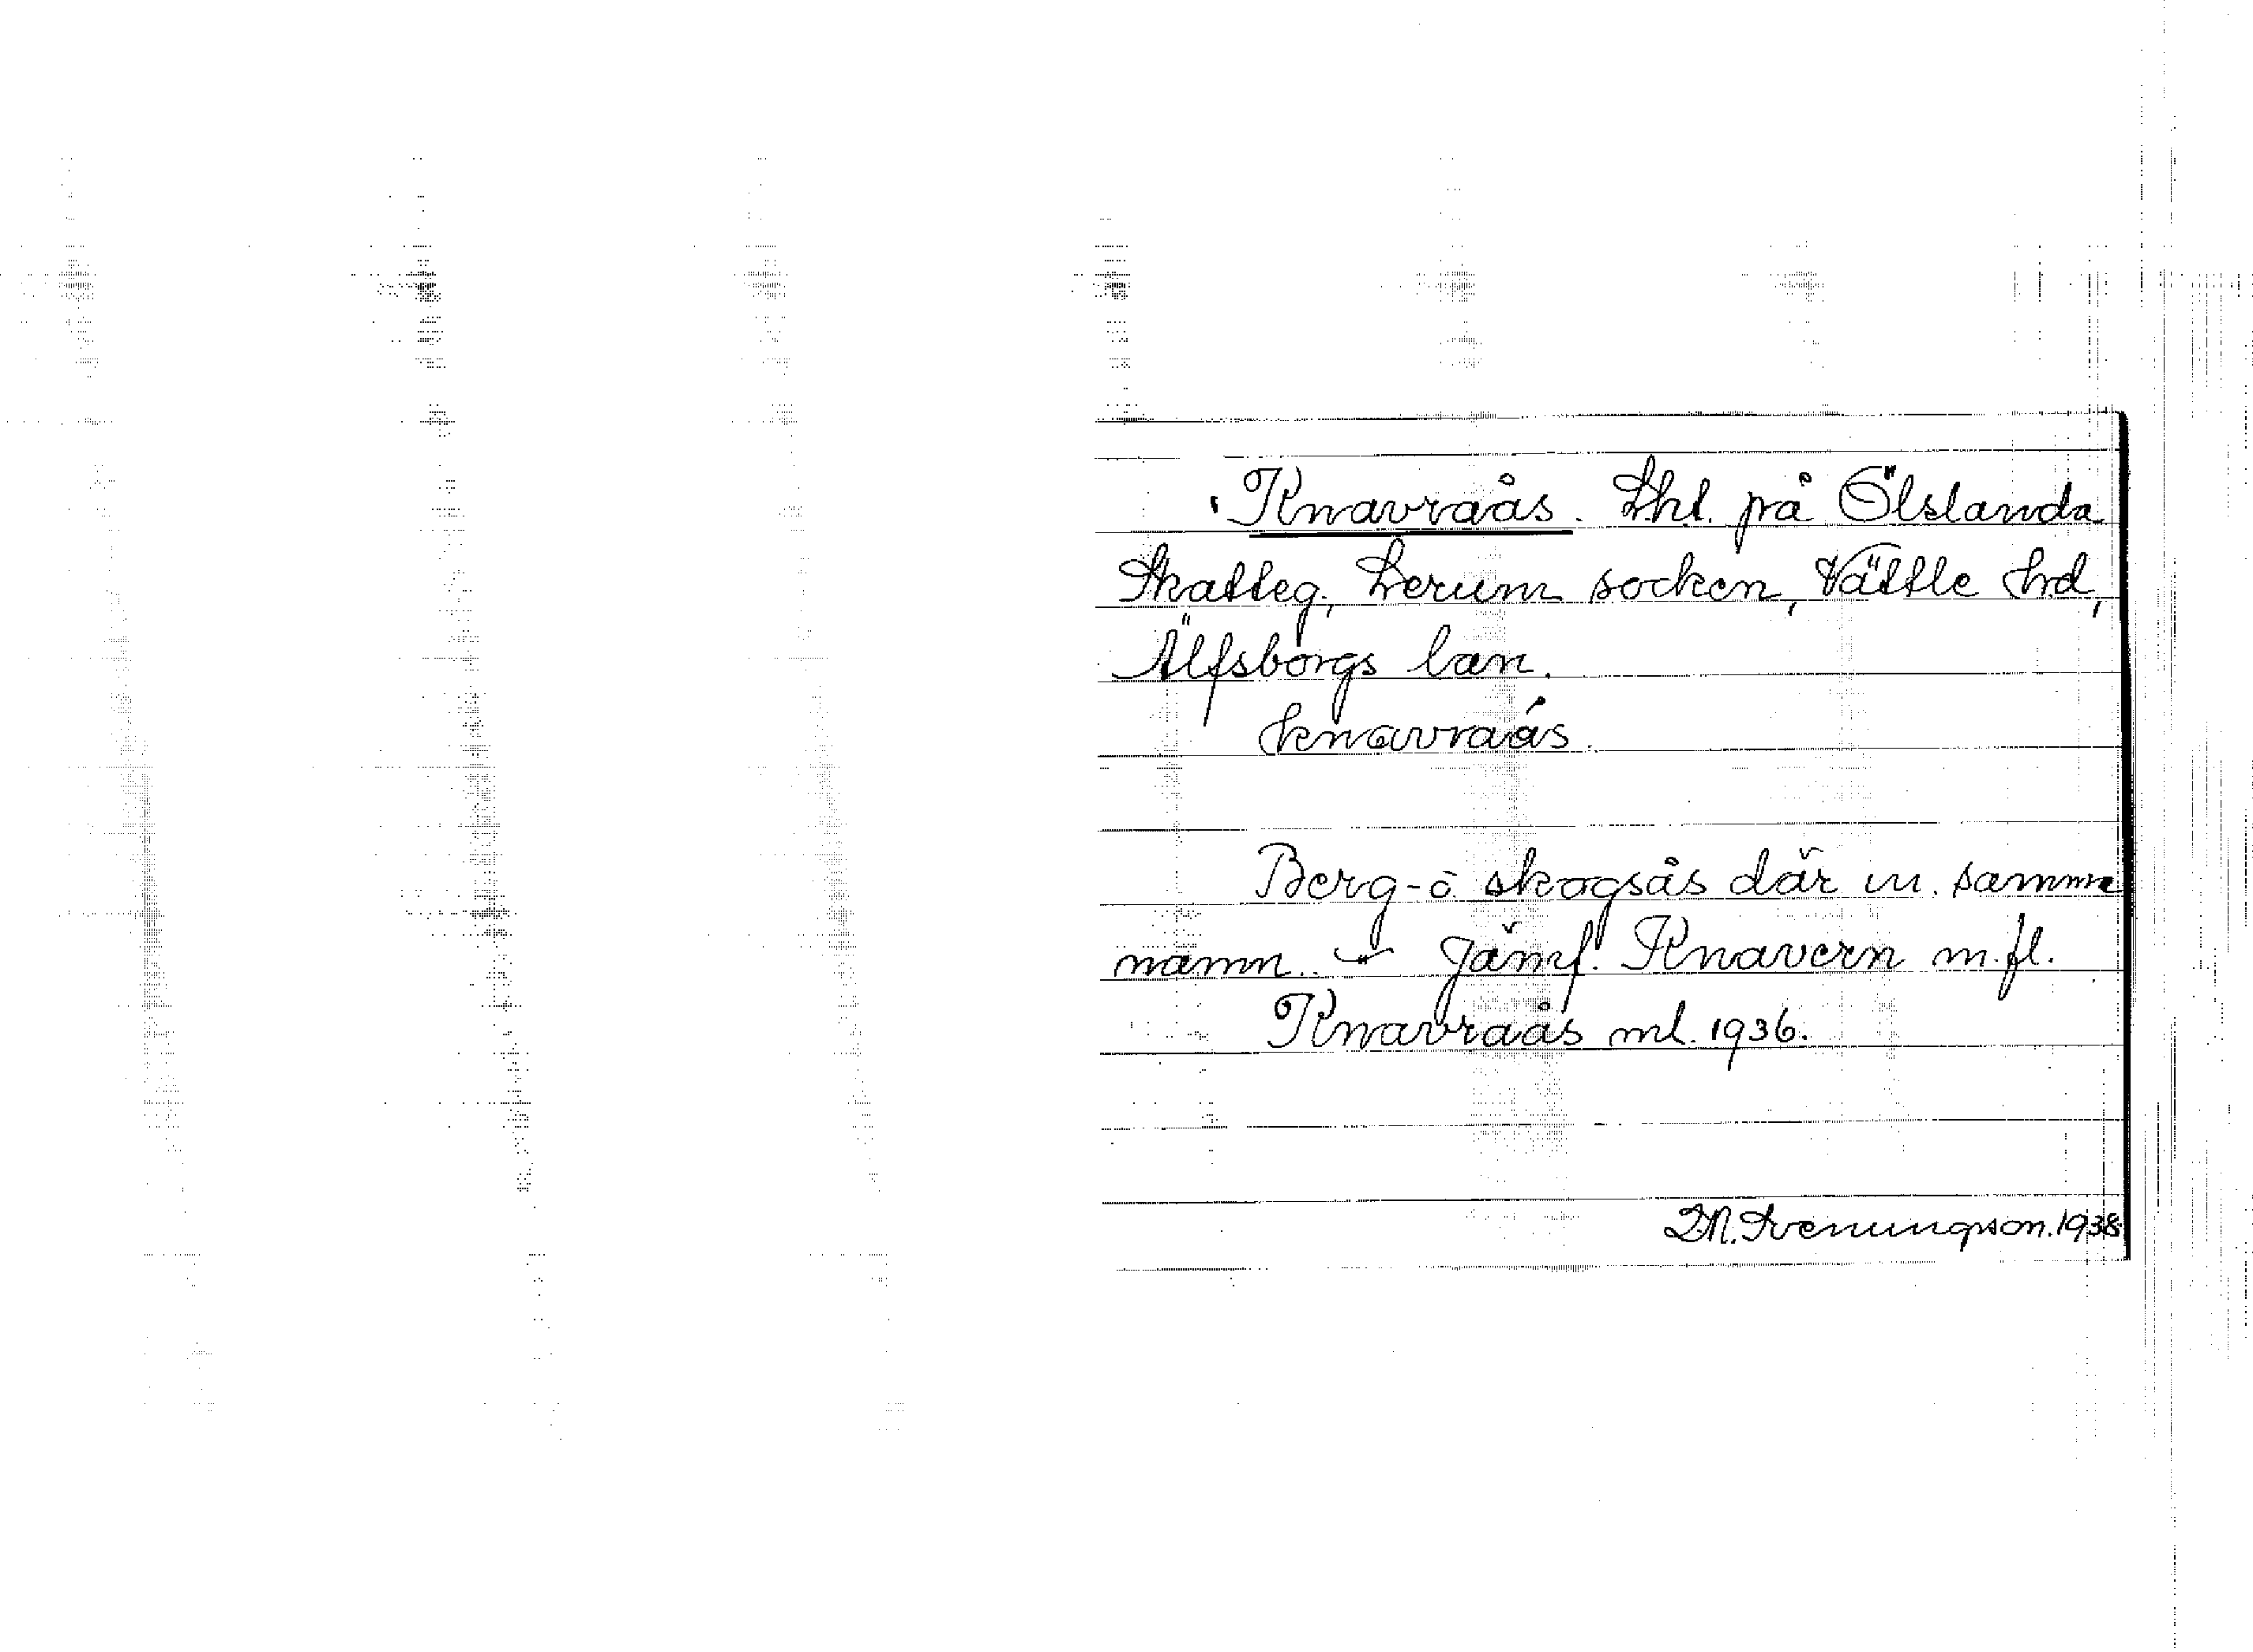 Knavraås. Lht. på Ölslanda
Skatteg., Lerum socken, Vättle hrd,
Älfsborgs län.
knavraás.
Berg- o. skogsås där m. samma
namn. Jämf. Knavern m.fl.
Knavraås ml. 1936.
1938